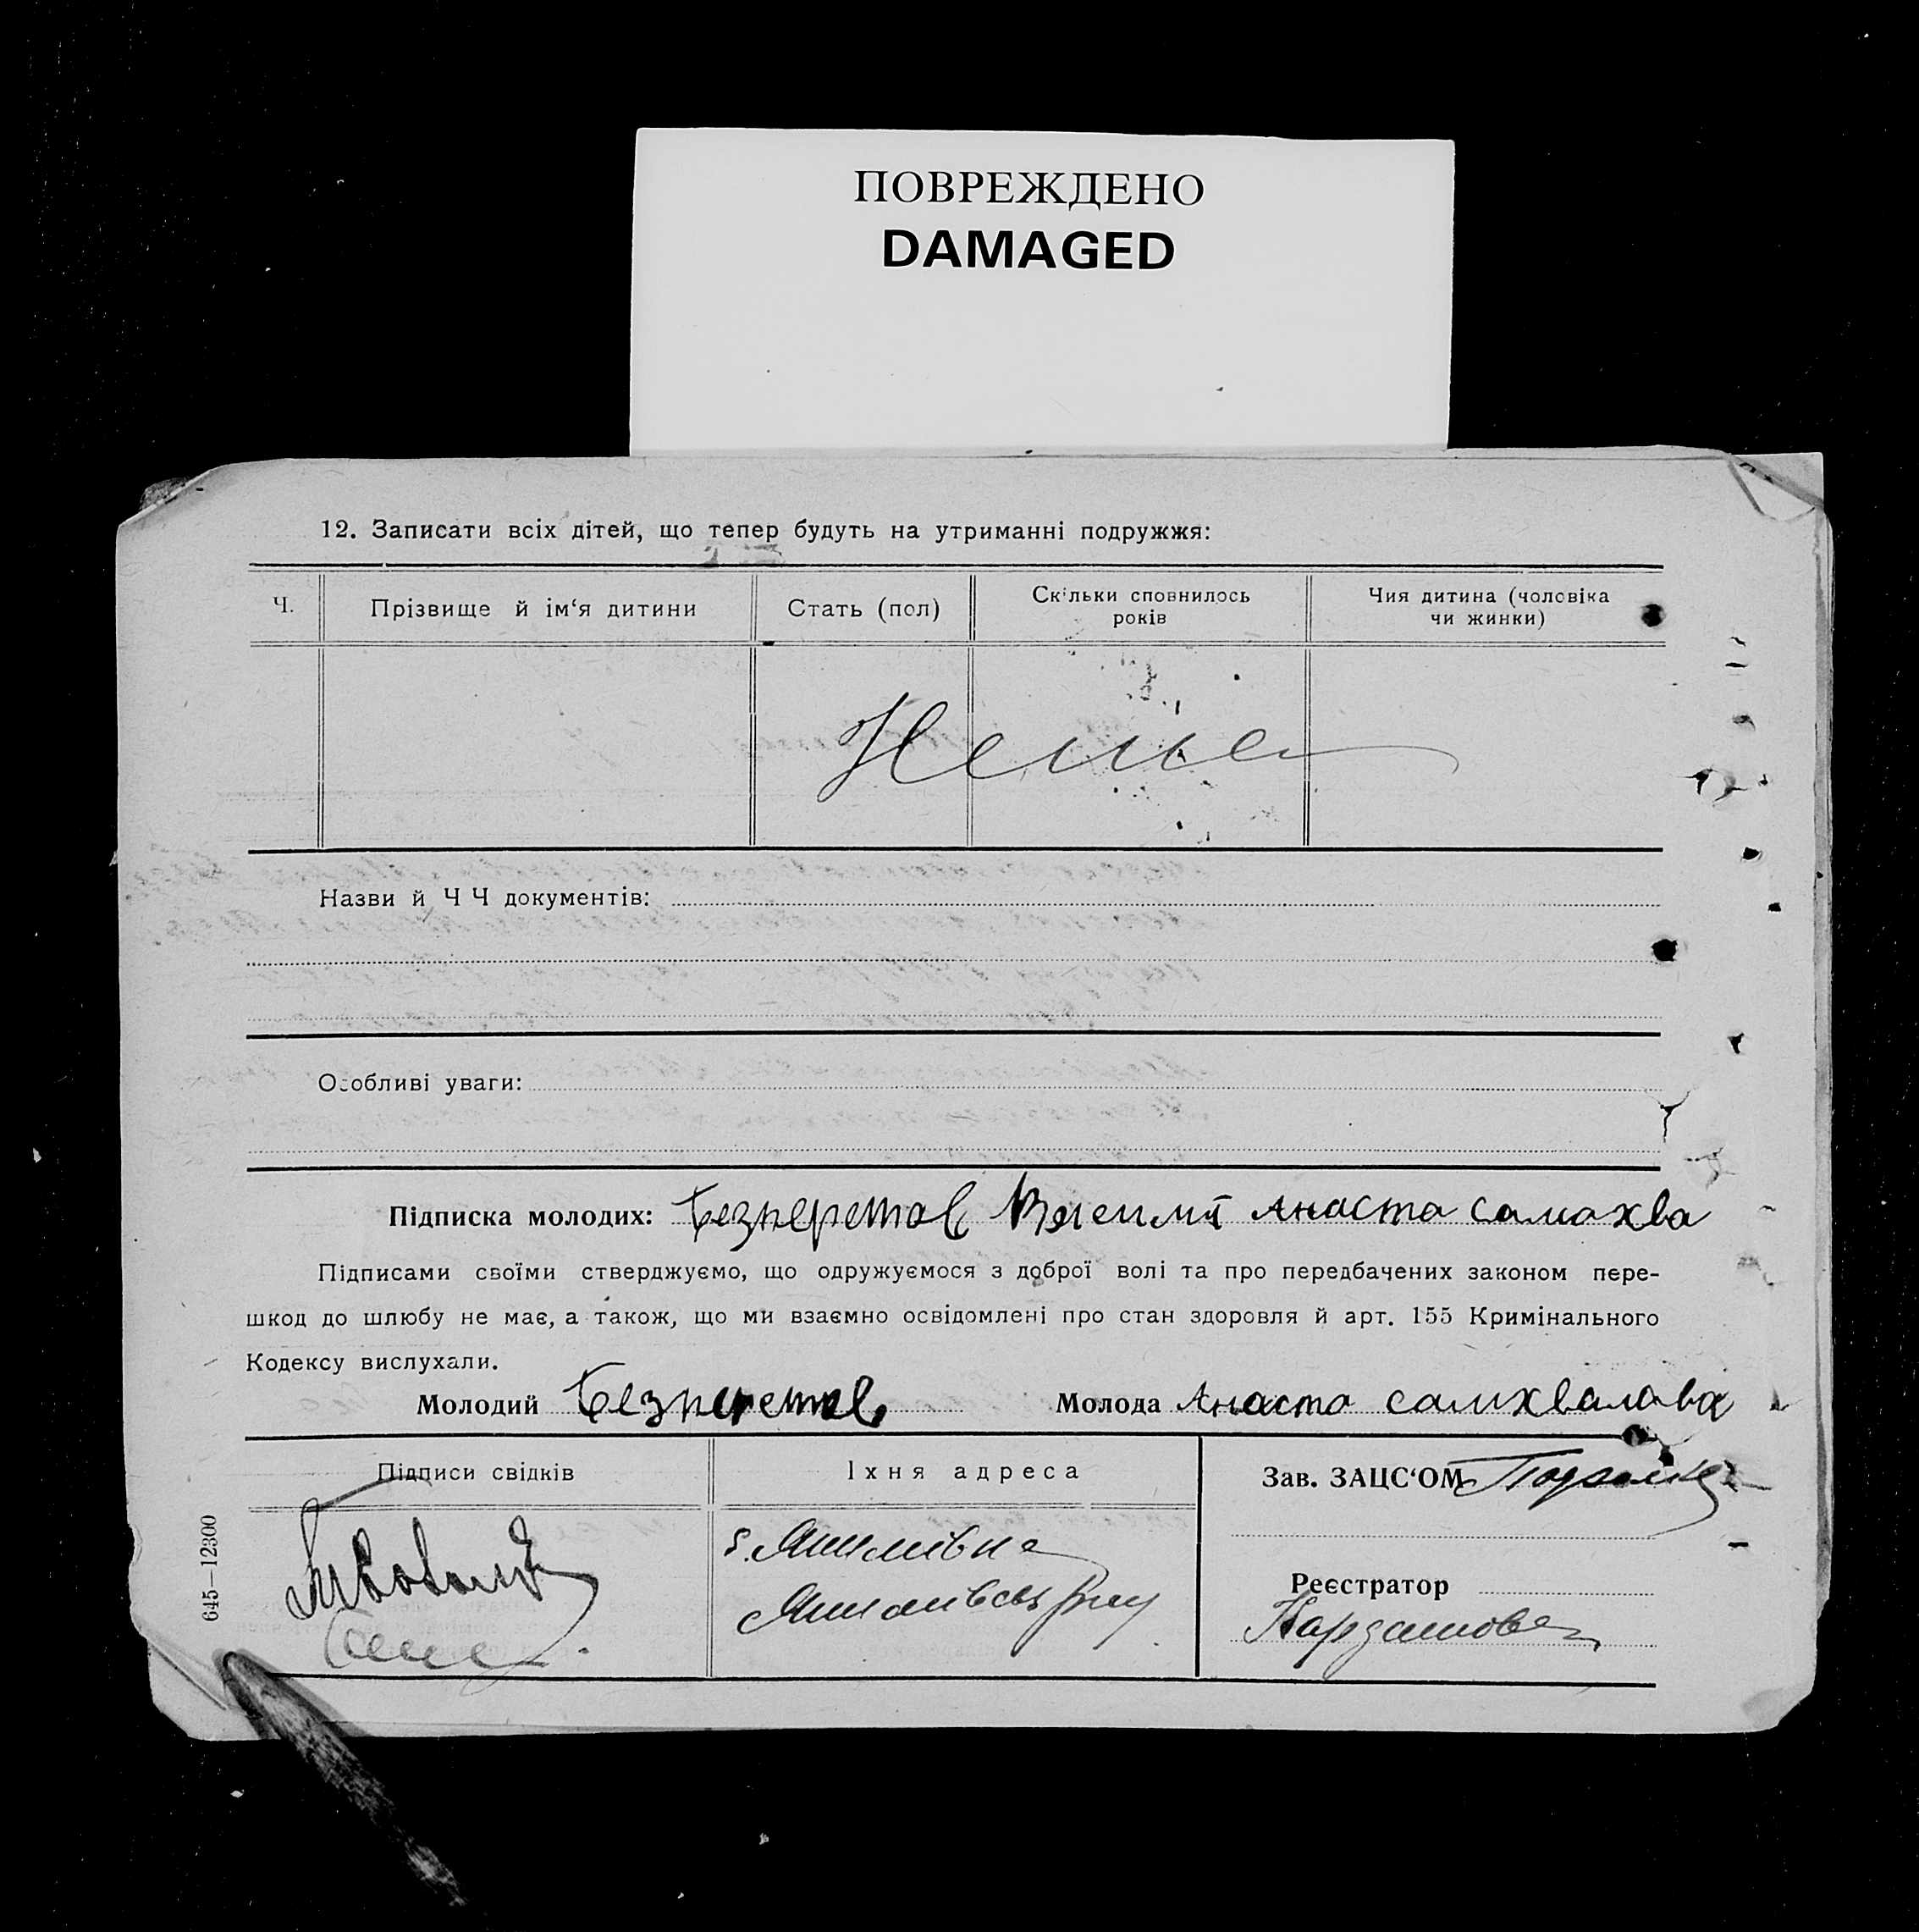 ПОВРЕЖДЕНО
DAMAGED
12. Записати всіх дітей, що тепер будуть на утриманні подружжя:
Ч.
Прізвище й ім‘я дитини
Стать (пол)
Скільки сповнилось
років
Чия дитина (чоловіка
чи жинки)
Нема
Назви й Ч Ч документів:
Особливі уваги:
Підписка молодих: Анаста самохва
Підписами своїми стверджуємо, що одружуємося з доброї волі та про передбачених законом пере-
шкод до шлюбу не має, а також, що ми взаємно освідомлені про стан здоровля й арт. 155 Кримінального
Кодексу вислухали.
Молодий
Молода Анаста самхвалава
Підписи свідків
Їхня адреса
Зав. ЗАЦС‘ОМ
Реєстратор
645—12300